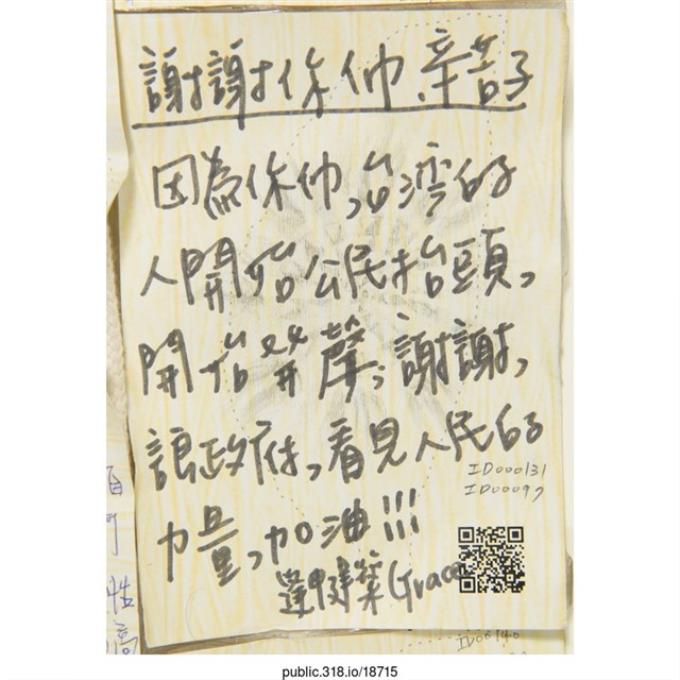 謝謝你们.辛苦了
因為你们,台湾的
人開始公民抬頭,
開始發聲;謝謝,
讓政府,看見人民的
力量,加油!!!
逢甲建築 Grace
ID000131
ID00097
public.318.io/18715